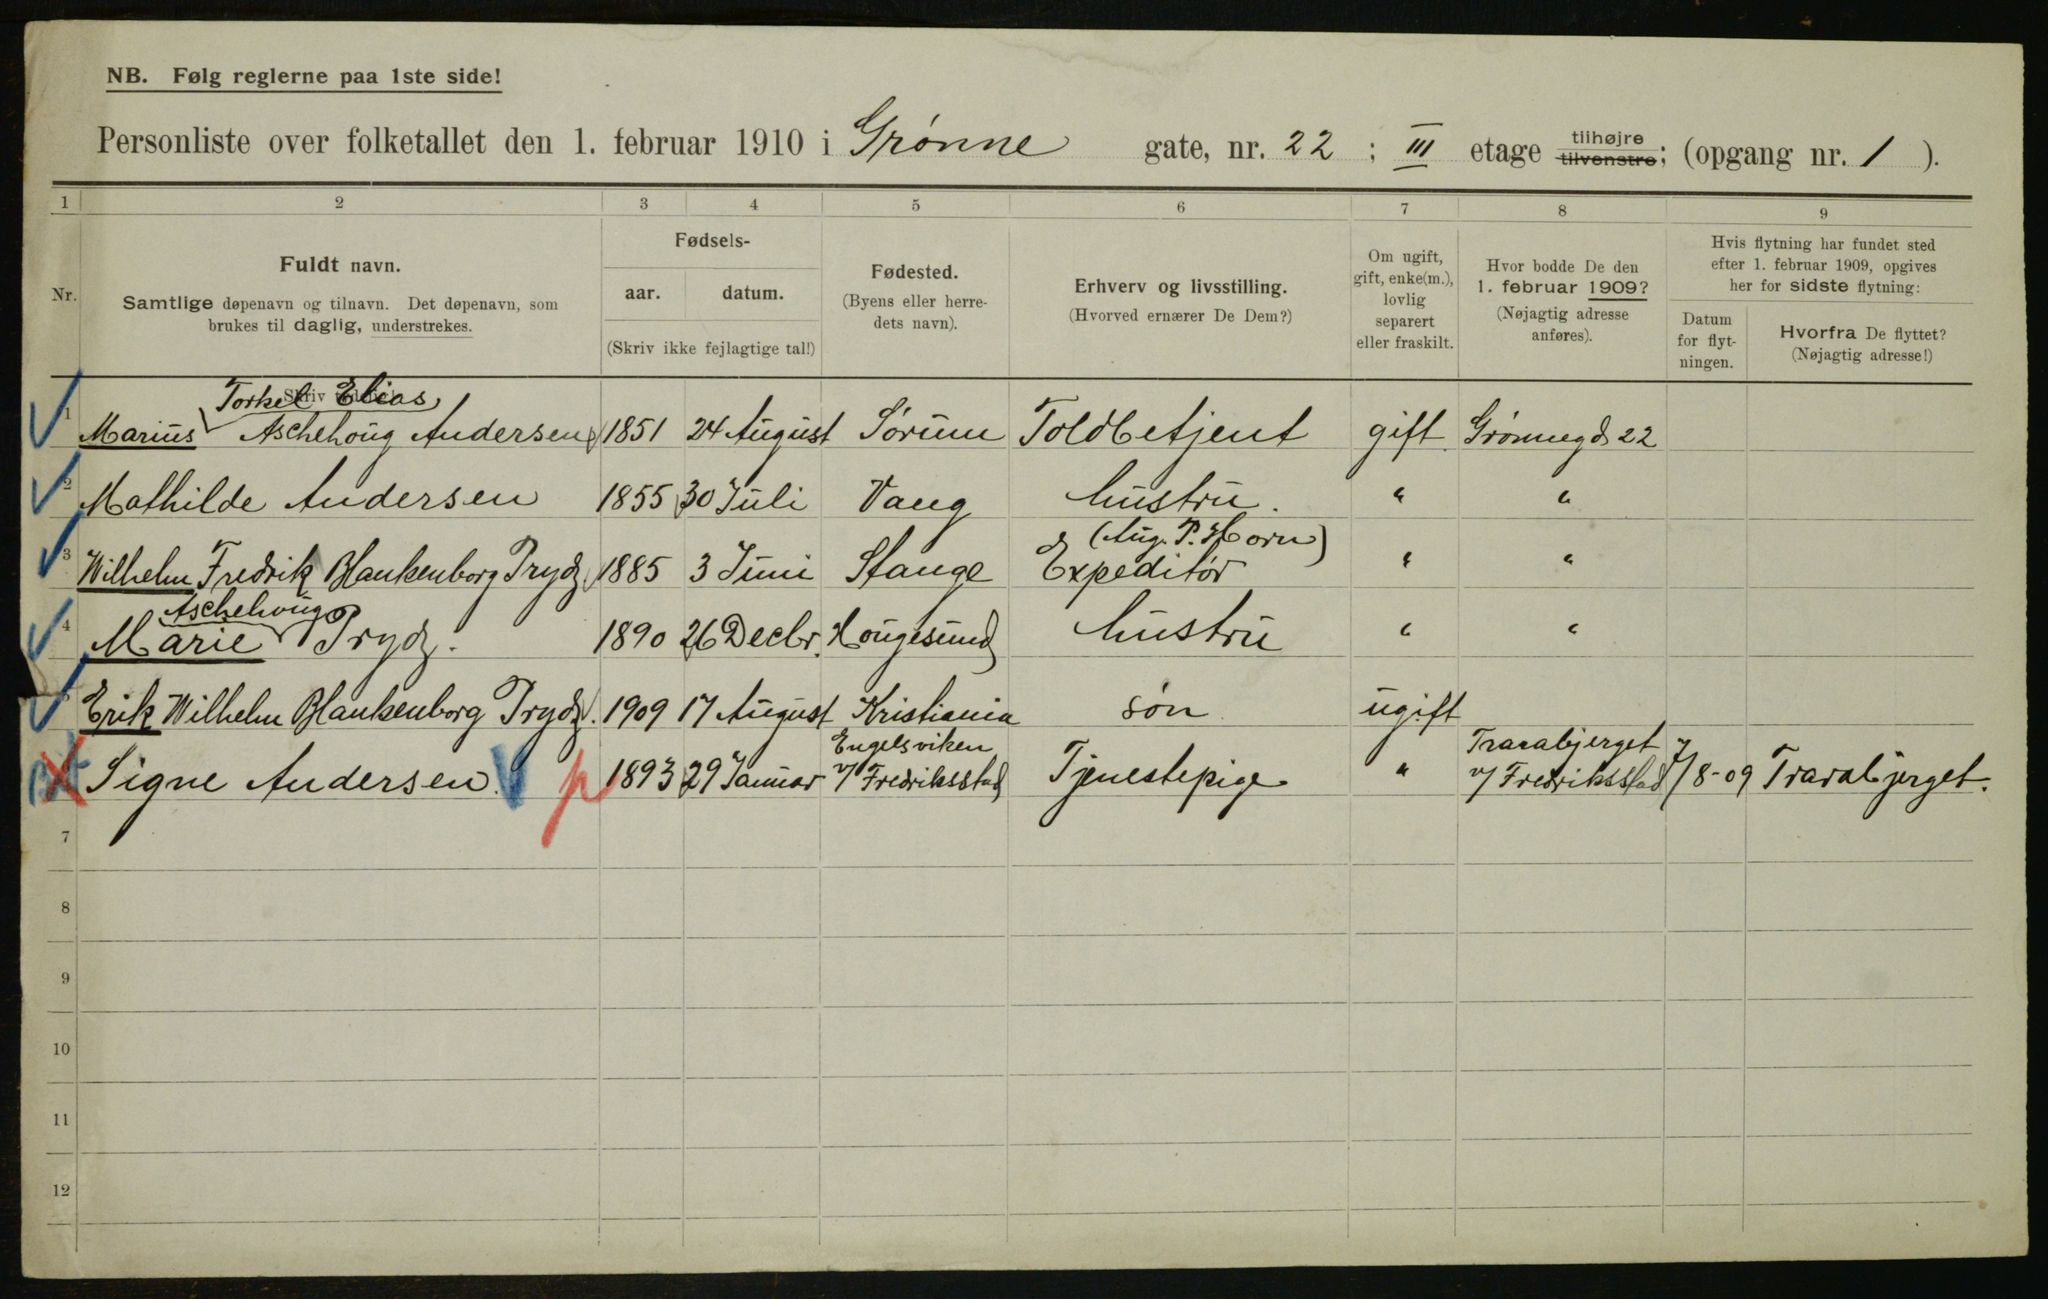 NB. Følg reglerne paa 1ste side!
Personliste over folketallet den 1. februar 1910 i Grønne gate, nr. 22 ; III etage tilhøjre tilvenstre; (opgang nr. 1 ).
1 2 3 4 5 6 7 8 9
Nr.
Fuldt navn.
Samtlige døpenavn og tilnavn. Det døpenavn, som
brukes til daglig, understrekes.
Fødsels-
aar. datum.
(Skriv ikke fejlagtige tal!)
Fødested.
(Byens eller herre-
dets navn).
Erhverv og livsstilling.
(Hvorved ernærer De Dem?)
Om ugift,
gift, enke(m.),
lovlig
separert
eller fraskilt.
Hvor bodde De den
1. februar 1909?
(Nøjagtig adresse
anføres).
Hvis flytning har fundet sted
efter 1. februar 1909, opgives
her for sidste flytning:
Datum
for flyt-
ningen.
Hvorfra De flyttet?
(Nøjagtig adresse!)
Torkel Elias
1 Marius Aschehoug Andersen 1851 24 August Sørum Toldbetjent gift Grønnegd 22
2 Mathilde Andersen 1855 30 Juli Vang hustru. " "
(Aug. P. Horn)
3 Wilhelm Fredrik Blankenborg Prydz 1885 3 Juni Stange Expeditør " "
Aschehoug
4 Marie Prydz. 1890 26 Decbr. Hougesund hustru " "
5 Erik Wilhelm Blankenborg Prydz. 1909 17 August Kristiania søn ugift
Engelsviken Trarabjerget
Signe Andersen. p 1893 29 Januar v/ Fredriksstad Tjenestepige " v/ Fredriksstad 7/8-09 Trarabjerget.
7
8
9
10
11
12